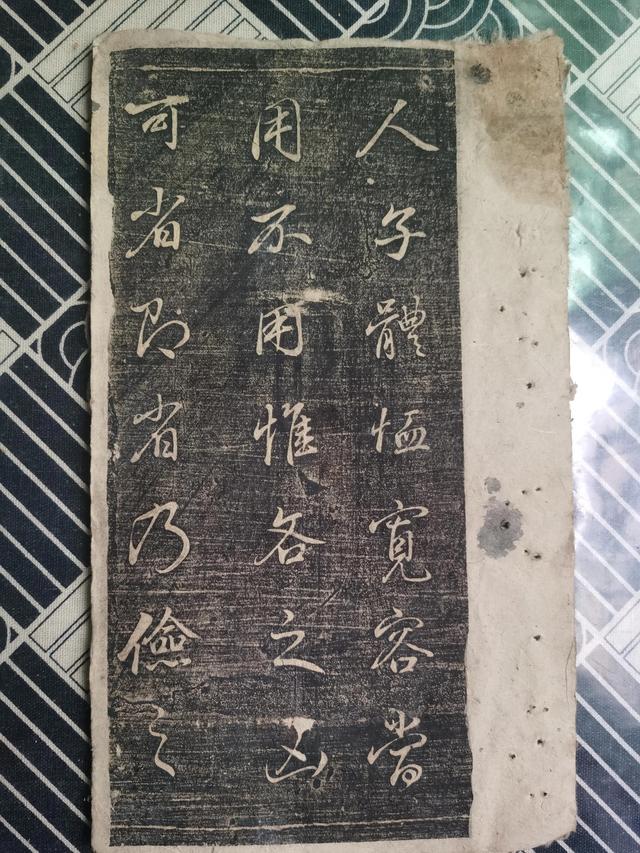 人子體恤寬容當
用不用惟各之凶
可省即省乃儉之